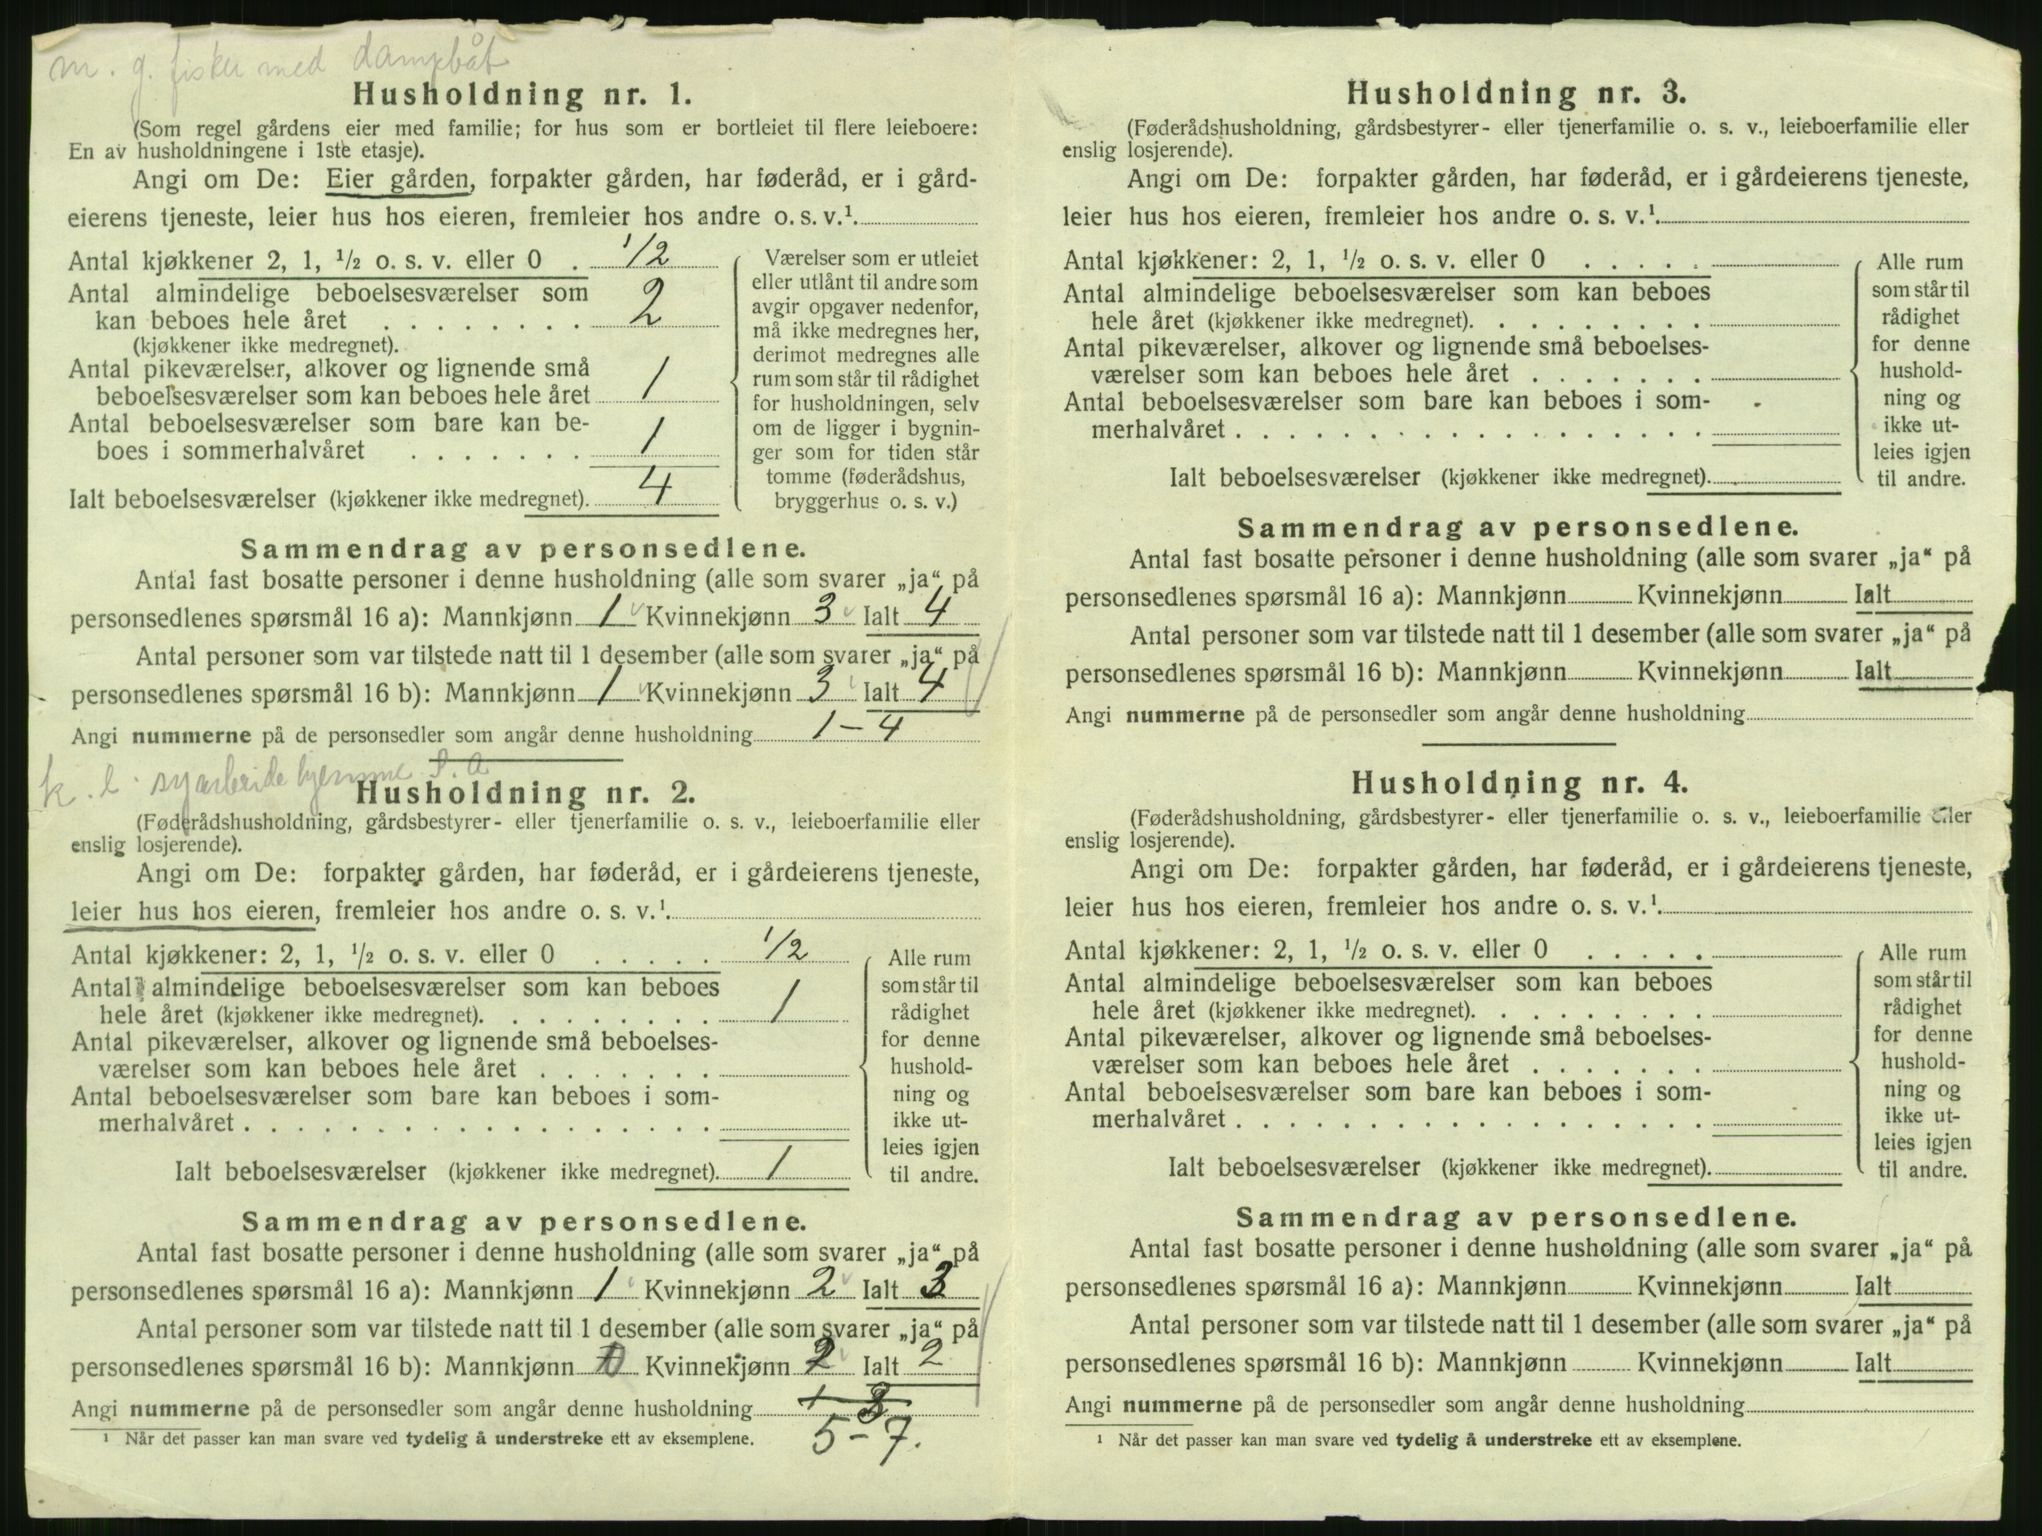 m. g. fisker med dampbåt
Husholdning nr. 1.
(Som regel gårdens eier med familie; for hus som er bortleiet til flere leieboere:
En av husholdningene i 1ste etasje).
Angi om De: Eier gården, forpakter gården, har føderåd, er i gård-
eierens tjeneste, leier hus hos eieren, fremleier hos andre o. s. v.¹
Antal kjøkkener 2, 1, ½ o. s. v. eller 0 . 1/2
Antal almindelige beboelsesværelser som
kan beboes hele året . . . . . . . . 2
(kjøkkener ikke medregnet).
Antal pikeværelser, alkover og lignende små
beboelsesværelser som kan beboes hele året 1
Antal beboelsesværelser som bare kan be-
boes i sommerhalvåret . . . . . . . 1
Ialt beboelsesværelser (kjøkkener ikke medregnet). 4
Værelser som er utleiet
eller utlånt til andre som
avgir opgaver nedenfor,
må ikke medregnes her,
derimot medregnes alle
rum som står til rådighet
for husholdningen, selv
om de ligger i bygnin-
ger som for tiden står
tomme (føderådshus,
bryggerhus o. s. v.)
Sammendrag av personsedlene.
Antal fast bosatte personer i denne husholdning (alle som svarer „ja“ på
personsedlenes spørsmål 16 a): Mannkjønn 1 Kvinnekjønn 3 Ialt 4
Antal personer som var tilstede natt til 1 desember (alle som svarer „ja“ på
personsedlenes spørsmål 16 b): Mannkjønn 1 Kvinnekjønn 3 Ialt 4
Angi nummerne på de personsedler som angår denne husholdning 1 – 4
k. l. syarbeide hjemme S. A
Husholdning nr. 2.
(Føderådshusholdning, gårdsbestyrer- eller tjenerfamilie o. s. v., leieboerfamilie eller
enslig losjerende).
Angi om De: forpakter gården, har føderåd, er i gårdeierens tjeneste,
leier hus hos eieren, fremleier hos andre o. s. v.¹
Antal kjøkkener: 2, 1, ½ o. s. v. eller 0 . . . . . 1/2
Antal almindelige beboelsesværelser som kan beboes
hele året (kjøkkener ikke medregnet). . . . . . . . . 1
Antal pikeværelser, alkover og lignende små beboelses-
værelser som kan beboes hele året . . . . . . .
Antal beboelsesværelser som bare kan beboes i som-
merhalvåret . . . . . . . . . . . . . . . . . .
Ialt beboelsesværelser (kjøkkener ikke medregnet). 1
Alle rum
som står til
rådighet
for denne
hushold-
ning og
ikke ut-
leies igjen
til andre.
Sammendrag av personsedlene.
Antal fast bosatte personer i denne husholdning (alle som svarer „ja“ på
personsedlenes spørsmål 16 a): Mannkjønn 1 Kvinnekjønn 2 Ialt 3
Antal personer som var tilstede natt til 1 desember (alle som svarer „ja“ på
personsedlenes spørsmål 16 b): Mannkjønn 0 Kvinnekjønn 2 Ialt 2
Angi nummerne på de personsedler som angår denne husholdning 1 3
5 – 7.
¹ Når det passer kan man svare ved tydelig å understreke ett av eksemplene.
Husholdning nr. 3.
(Føderådshusholdning, gårdsbestyrer- eller tjenerfamilie o. s. v., leieboerfamilie eller
enslig losjerende).
Angi om De: forpakter gården, har føderåd, er i gårdeierens tjeneste,
leier hus hos eieren, fremleier hos andre o. s. v.¹
Antal kjøkkener: 2, 1, ½ o. s. v. eller 0 . . . . .
Antal almindelige beboelsesværelser som kan beboes
hele året (kjøkkener ikke medregnet). . . . . . . . .
Antal pikeværelser, alkover og lignende små beboelses-
værelser som kan beboes hele året . . . . . . .
Antal beboelsesværelser som bare kan beboes i som-
merhalvåret . . . . . . . . . . . . . . . . . .
Ialt beboelsesværelser (kjøkkener ikke medregnet).
Alle rum
som står til
rådighet
for denne
hushold-
ning og
ikke ut-
leies igjen
til andre.
Sammendrag av personsedlene.
Antal fast bosatte personer i denne husholdning (alle som svarer „ja“ på
personsedlenes spørsmål 16 a): Mannkjønn Kvinnekjønn Ialt
Antal personer som var tilstede natt til 1 desember (alle som svarer „ja“ på
personsedlenes spørsmål 16 b): Mannkjønn Kvinnekjønn Ialt
Angi nummerne på de personsedler som angår denne husholdning
Husholdning nr. 4.
(Føderådshusholdning, gårdsbestyrer- eller tjenerfamilie o. s. v., leieboerfamilie eller
enslig losjerende).
Angi om De: forpakter gården, har føderåd, er i gårdeierens tjeneste,
leier hus hos eieren, fremleier hos andre o. s. v.¹
Antal kjøkkener: 2, 1, ½ o. s. v. eller 0 . . . . .
Antal almindelige beboelsesværelser som kan beboes
hele året (kjøkkener ikke medregnet). . . . . . . . .
Antal pikeværelser, alkover og lignende små beboelses-
værelser som kan beboes hele året . . . . . . .
Antal beboelsesværelser som bare kan beboes i som-
merhalvåret . . . . . . . . . . . . . . . . . .
Ialt beboelsesværelser (kjøkkener ikke medregnet).
Alle rum
som står til
rådighet
for denne
hushold-
ning og
ikke ut-
leies igjen
til andre.
Sammendrag av personsedlene.
Antal fast bosatte personer i denne husholdning (alle som svarer „ja“ på
personsedlenes spørsmål 16 a): Mannkjønn Kvinnekjønn Ialt
Antal personer som var tilstede natt til 1 desember (alle som svarer „ja“ på
personsedlenes spørsmål 16 b): Mannkjønn Kvinnekjønn Ialt
Angi nummerne på de personsedler som angår denne husholdning
¹ Når det passer kan man svare ved tydelig å understreke ett av eksemplene.